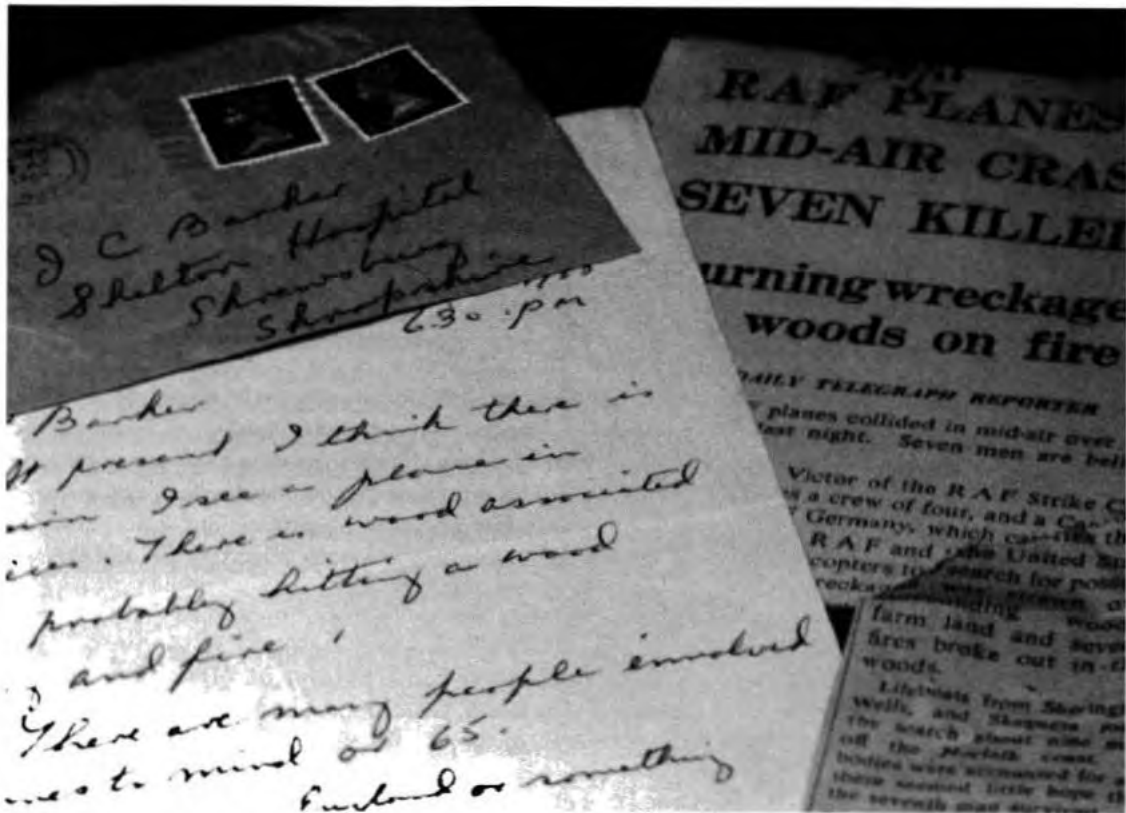 J C Barker
Shelton Hospital
Shrewsbury
Shropshire
6.30.pm
Barker
At present I think there is
I see a plane in
There is wood associated
probably hitting a wood
and fire
There are many people envolved
mes to mind or 65.
England or something
RAF PLANES
MID-AIR CRAS
SEVEN KILLE
urning wreckage
woods on fire
DAILY TELEGRAPH REPORTER
planes collided in mid-air over
last night. Seven men are beli
Victor of the RAF Strike C
s a crew of four, and a Ca
Germany, which carries th
RAF and the United St
copters to search for poss
wreckage
farm land and seve
fires broke out in th
woods.
Lifeboats from Shering
Wells, and Skegness jo
the search about nine m
off the Norfolk coast.
bodies were accounted for a
there seemed little hope th
the seventh man survived